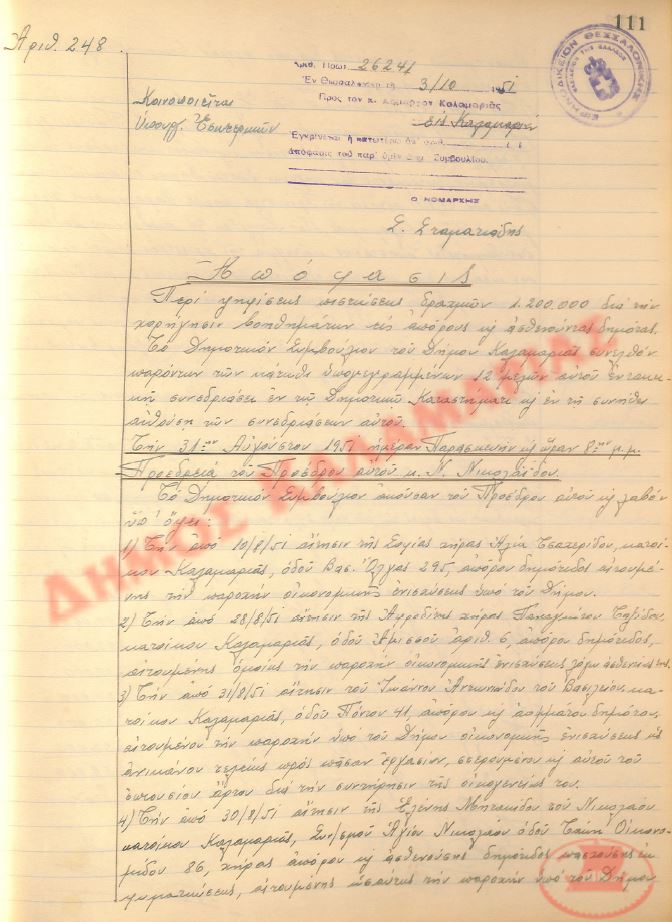 111
Ἀριθ. 248.
ΕΙΡΗΝΟΔΙΚΕΙΟΝ ΘΕΣΣΑΛΟΝΙΚΗΣ
Ἀριθ. Πρωτ. 26241
Ἐν Θεσσαλονίκῃ τῇ 3/10 1951
Κοινοποιεῖται
Πρὸς τὸν κ. Δήμαρχον Καλαμαριᾶς
Ὑπουργ. Ἐσωτερικῶν
Εἰς Καλαμαριὰ
Ἐγκρίνεται ἡ κατωτέρω ὑπ' ἀριθ.
ἀπόφασις τοῦ παρ' ὑμῖν Συμβουλίου.
Ο ΝΟΜΑΡΧΗΣ
Σ. Σταματιάδης
Ἀπόφασις
Περὶ ψηφίσεως πιστώσεως δραχμῶν 1.200.000 διὰ τὴν
χορήγησιν βοηθημάτων εἰς ἀπόρους κ ἀσθενοῦντας δημότας.
Τὸ Δημοτικὸν Συμβούλιον τοῦ Δήμου Καλαμαριᾶς συνελθὸν
παρόντων τῶν κάτωθι ὑπογεγραμμένων 12 μελῶν αὐτοῦ ἐν τακτι-
κῇ συνεδριάσει ἐν τῷ Δημοτικῷ Καταστήματι κ ἐν τῇ συνήθει
αἰθούσῃ τῶν συνεδριάσεων αὐτοῦ.
Τὴν 31ην Αὐγούστου 1951 ἡμέραν Παρασκευὴν κ ὥραν 8ην μ.μ.
Προεδρείᾳ τοῦ Προέδρου αὐτοῦ κ. Ν. Νικολαΐδου.
Τὸ Δημοτικὸν Συμβούλιον ἀκοῦσαν τοῦ Προέδρου αὐτοῦ κ λαβὸν
ὑπ' ὄψει:
1) Τὴν ἀπὸ 10/8/51 αἴτησιν τῆς Σοφίας χήρας Ἠλία Τσαχερίδου, κατοί-
κου Καλαμαριᾶς, ὁδοῦ Βασ. Ὄλγας 295, ἀπόρου δημότιδος αἰτουμέ-
νης τὴν παροχὴν οἰκονομικῆς ἐνισχύσεως ὑπὸ τοῦ Δήμου.
2) Τὴν ἀπὸ 28/8/51 αἴτησιν τῆς Ἀφροδίτης χήρας Παναγιώτου
κατοίκου Καλαμαριᾶς, ὁδοῦ Ἀμισσοῦ ἀριθ. 6, ἀπόρου δημότιδος,
αἰτουμένης ὁμοίως τὴν παροχὴν οἰκονομικῆς ἐνισχύσεως λόγῳ ἀσθενείας της.
3) Τὴν ἀπὸ 31/8/51 αἴτησιν τοῦ Ἰωάννου Ἀντωνιάδου τοῦ Βασιλείου, κα-
τοίκου Καλαμαριᾶς, ὁδοῦ Πόντου 41, ἀπόρου κ ἀομμάτου δημότου,
αἰτουμένου τὴν παροχὴν ὑπὸ τοῦ Δήμου οἰκονομικῆς ἐνισχύσεως ὡς
ἀνικάνου τελείως πρὸς πᾶσαν ἐργασίαν, στερουμένου κ αὐτοῦ τοῦ
ἐπιουσίου ἄρτου διὰ τὴν συντήρησιν τῆς οἰκογενείας του.
4) Τὴν ἀπὸ 30/8/51 αἴτησιν τῆς Ἑλένης τοῦ Νικολάου
κατοίκου Καλαμαριᾶς, Συν/σμοῦ Ἁγίου Νικολάου ὁδοῦ Οἰκονο-
μίδου 86, χήρας ἀπόρου κ ἀσθενούσης δημότιδος πασχούσης ἐκ
αἰτουμένης ὡσαύτως τὴν παροχὴν ὑπὸ τοῦ Δήμου
ΔΗΜΟΣ ΚΑΛΑΜΑΡΙΑΣ